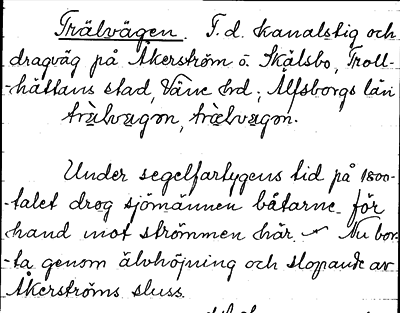 Trälvägen. F.d. kanalstig och
dragväg på Åkerström ö. Skälsbo, Troll-
-hättans stad, Väne hd, Älfsborgs län
trälvägon, trälvägon.
Under segelfartygens tid på 1800-
-talet drog sjömännen båtarne för
hand mot strömmen här. Nu bor-
-ta genom älvhöjning och slopande av
Åkerströms sluss.